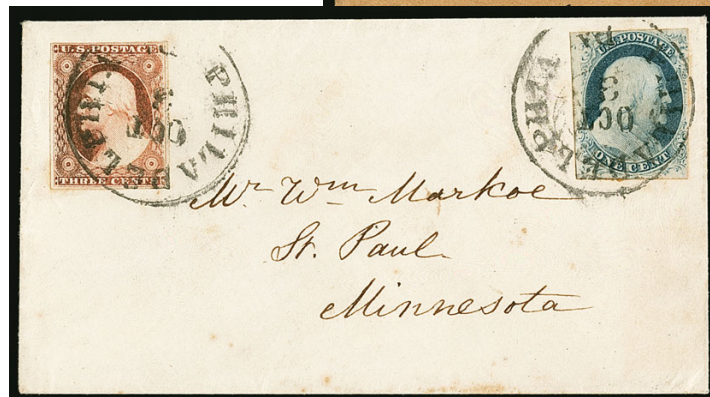 U.S. POSTAGE
THREE CENTS
PHILADELPHIA Pa.
OCT
3
U.S. POSTAGE
ONE CENT
PHILADELPHIA Pa.
OCT
3
Mr. Wm Markoe
St. Paul.
Minnesota